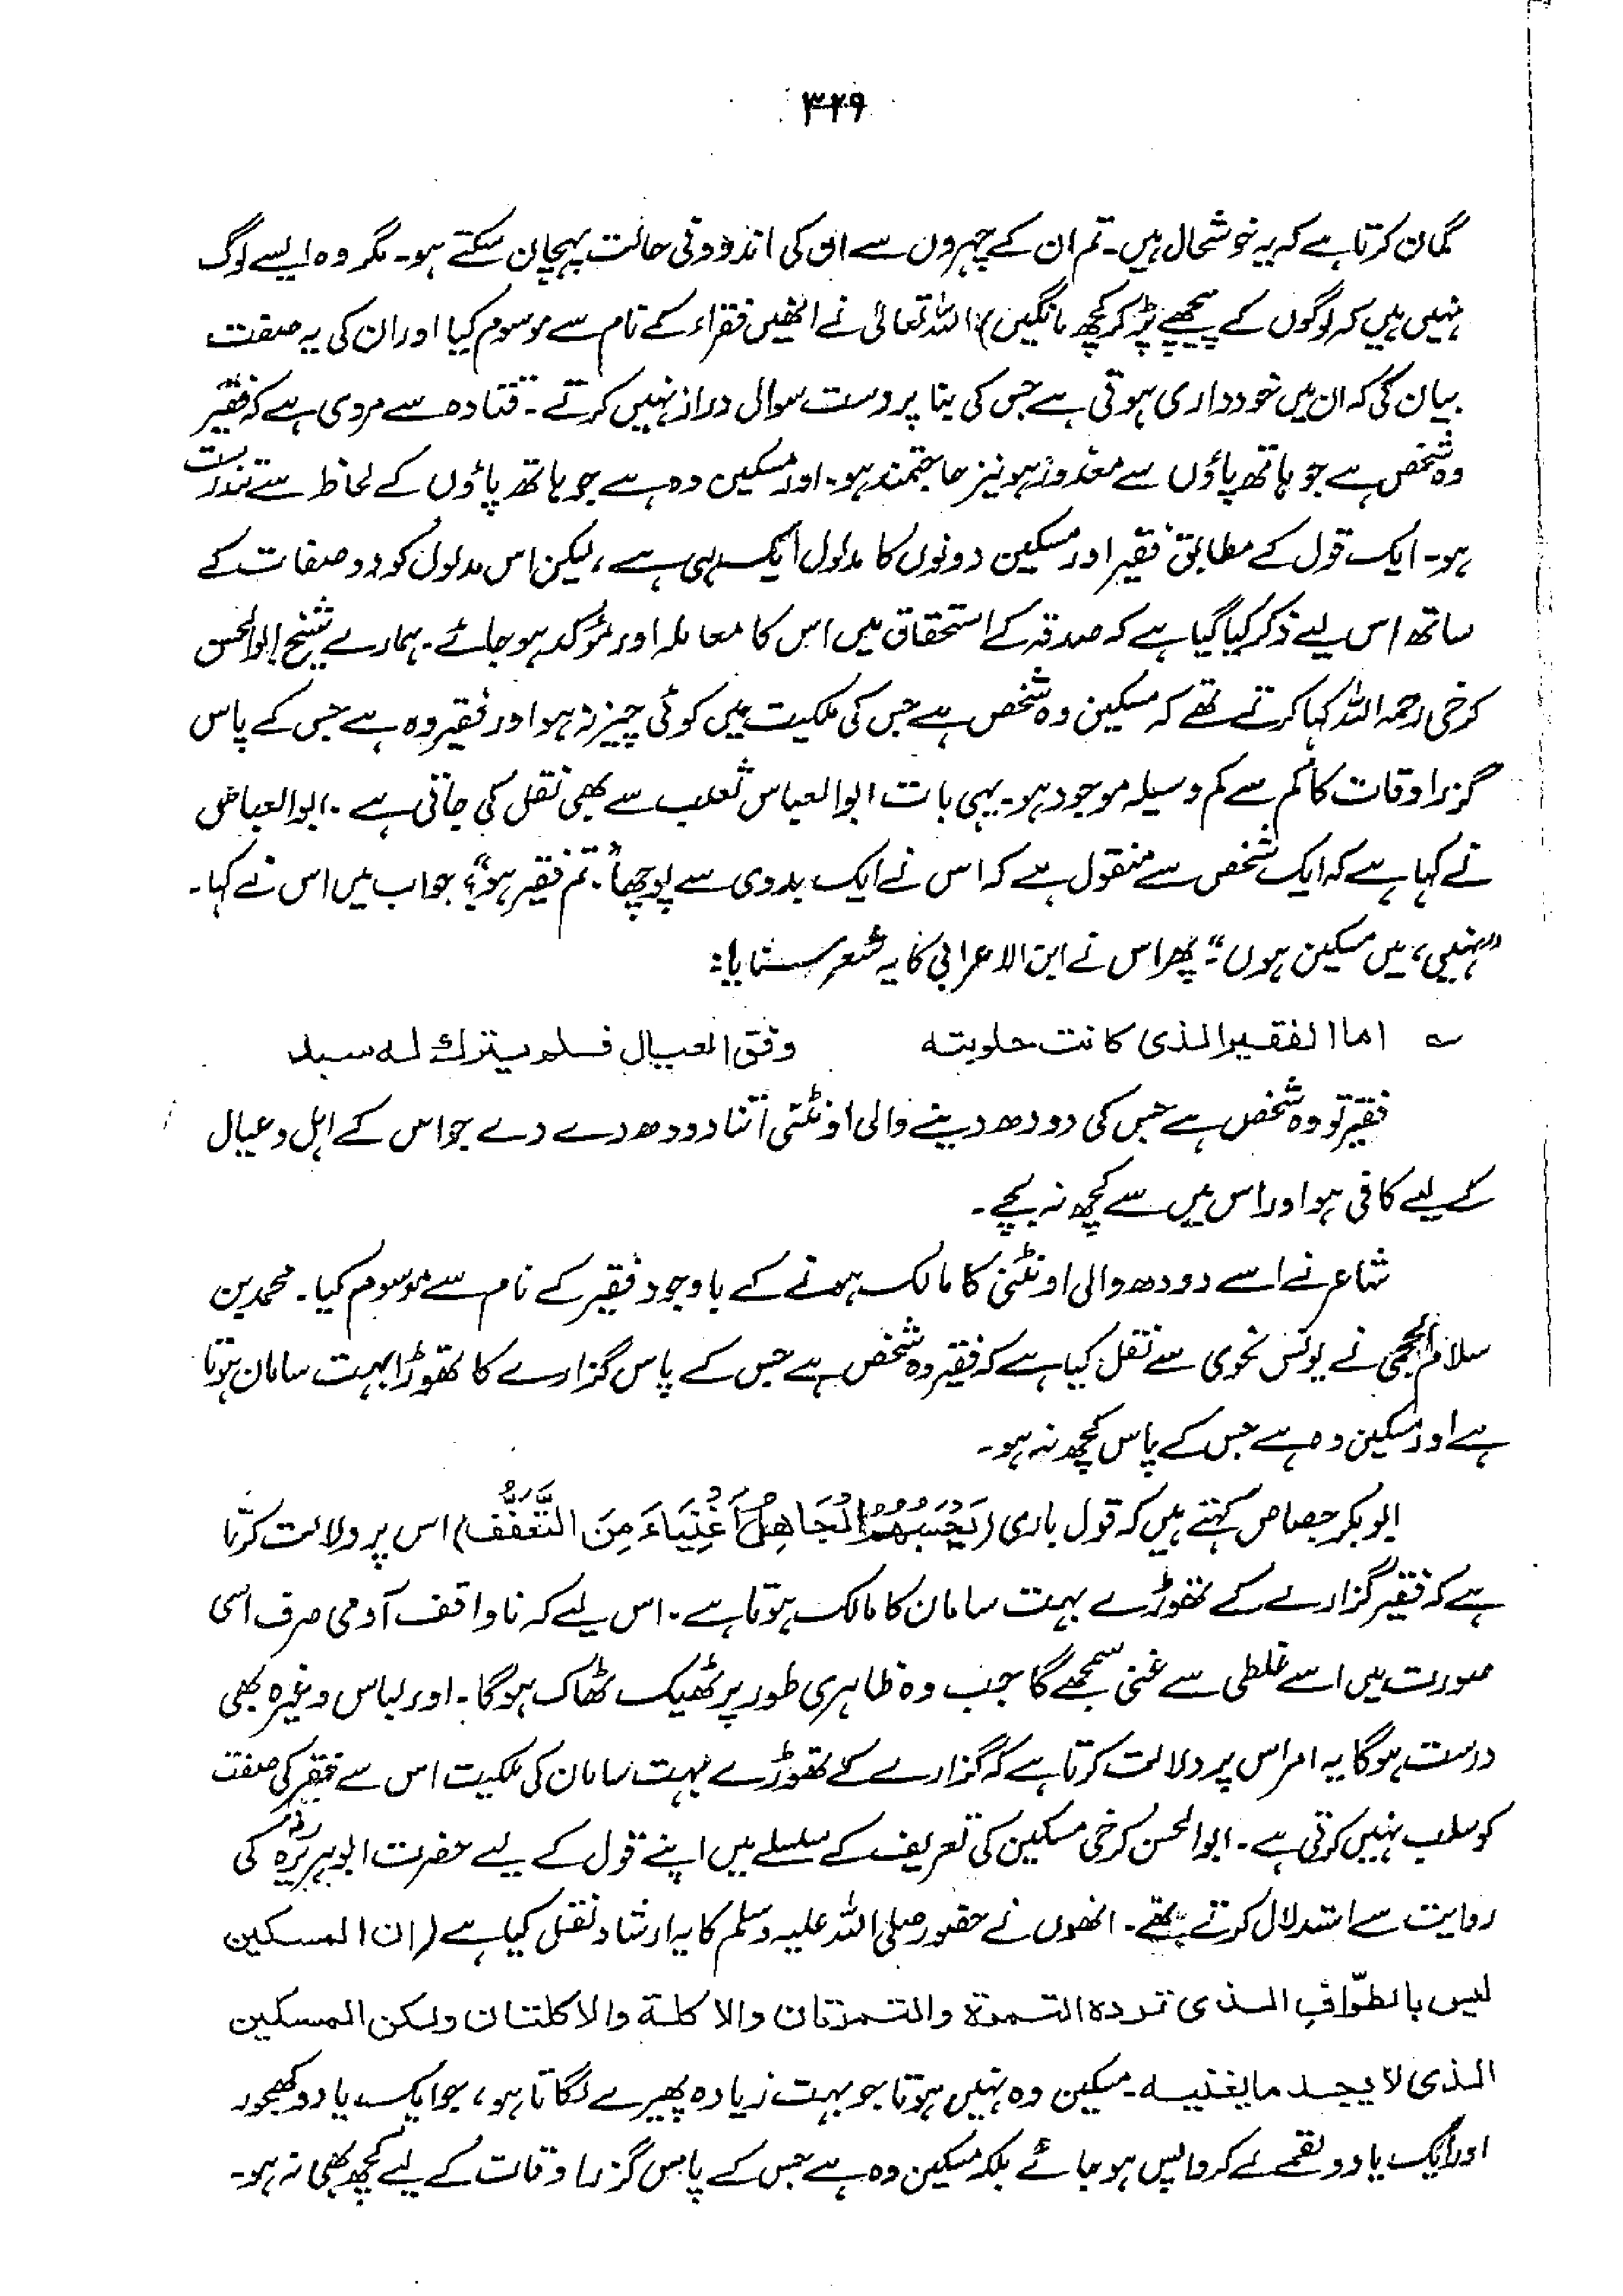 ۳۲۹
گمان کرتا ہے کہ یہ خوشحال ہیں۔ تم ان کے چہروں سے ان کی اندرونی حالت پہچان سکتے ہو۔ مگر وہ ایسے لوگ
نہیں ہیں کہ لوگوں کے پیچھے پڑ کر کچھ مانگیں) اللہ تعالیٰ نے انھیں فقراء کے نام سے موسوم کیا اور ان کی یہ صفت
بیان کی کہ ان میں خودداری ہوتی ہے جس کی بنا پر دست سوال دراز نہیں کرتے۔ قتادہ سے مروی ہے کہ فقیر
وہ شخص ہے جو ہاتھ پاؤں سے معذور ہو نیز حاجتمند ہو۔ اور مسکین وہ ہے جو ہاتھ پاؤں کے لحاظ سے تندرست
ہو۔ ایک قول کے مطابق فقیر اور مسکین دونوں کا مدلول ایک ہی ہے، لیکن اس مدلول کو دو صفات کے
ساتھ اس لیے ذکر کیا گیا ہے کہ صدقہ کے استحقاق میں اس کا معاملہ اور مؤکد ہو جائے۔ ہمارے شیخ ابوالحسن
کرخی رحمہ اللہ کہا کرتے تھے کہ مسکین وہ شخص ہے جس کی ملکیت میں کوئی چیز نہ ہو اور فقیر وہ ہے جس کے پاس
گزر اوقات کا کم سے کم وسیلہ موجود ہو۔ یہی بات ابوالعباس ثعلب سے بھی نقل کی جاتی ہے۔ ابوالعباس
نے کہا ہے کہ ایک شخص سے منقول ہے کہ اس نے ایک بدوی سے پوچھا "تم فقیر ہو؟" جواب میں اس نے کہا۔
"نہیں، میں مسکین ہوں" پھر اس نے ابن الاعرابی کا یہ شعر سنایا:
؎ اما الفقیر الذی کانت حلوبتہ وفق العیال فلم یترک لہ سبد
فقیر تو وہ شخص ہے جس کی دودھ دینے والی اونٹنی اتنا دودھ دے دے جو اس کے اہل و عیال
کے لیے کافی ہو اور اس میں سے کچھ نہ بچے۔
شاعر نے اسے دودھ والی اونٹنی کا مالک ہونے کے باوجود فقیر کے نام سے موسوم کیا۔ محمد بن
سلام الجمحی نے یونس نحوی سے نقل کیا ہے کہ فقیر وہ شخص ہے جس کے پاس گزارے کا تھوڑا بہت سامان ہوتا
ہے اور مسکین وہ ہے جس کے پاس کچھ نہ ہو۔
ابوبکر جصاص کہتے ہیں کہ قول باری (یَحْسَبُهُمُ الْجَاهِلُ اَغْنِیَاءَ مِنَ التَّعَفُّفِ) اس پر دلالت کرتا
ہے کہ فقیر گزارے کے تھوڑے بہت سامان کا مالک ہوتا ہے۔ اس لیے کہ ناواقف آدمی صرف اسی
صورت میں اسے غلطی سے غنی سمجھے گا جب وہ ظاہری طور پر ٹھیک ٹھاک ہوگا۔ اور لباس وغیرہ بھی
درست ہوگا یہ امر اس پر دلالت کرتا ہے کہ گزارے کے تھوڑے بہت سامان کی ملکیت اس سے فقیر کی صفت
کو سلب نہیں کرتی ہے۔ ابوالحسن کرخی مسکین کی تعریف کے سلسلے میں اپنے قول کے لیے حضرت ابوہریرہؓ کی
روایت سے استدلال کرتے تھے۔ انھوں نے حضور صلی اللہ علیہ وسلم کا یہ ارشاد نقل کیا ہے (ان المسکین
لیس بالطوّاف الذی تردہ التمرة والتمرتان والاکلة والاکلتان ولکن المسکین
الذی لا یجد ما یغنیہ۔ مسکین وہ نہیں ہوتا جو بہت زیادہ پھیرے لگاتا ہو، جو ایک یا دو کھجور
اور ایک یا دو لقمے لے کر واپس ہو جائے بلکہ مسکین وہ ہے جس کے پاس گزر اوقات کے لیے کچھ بھی نہ ہو۔